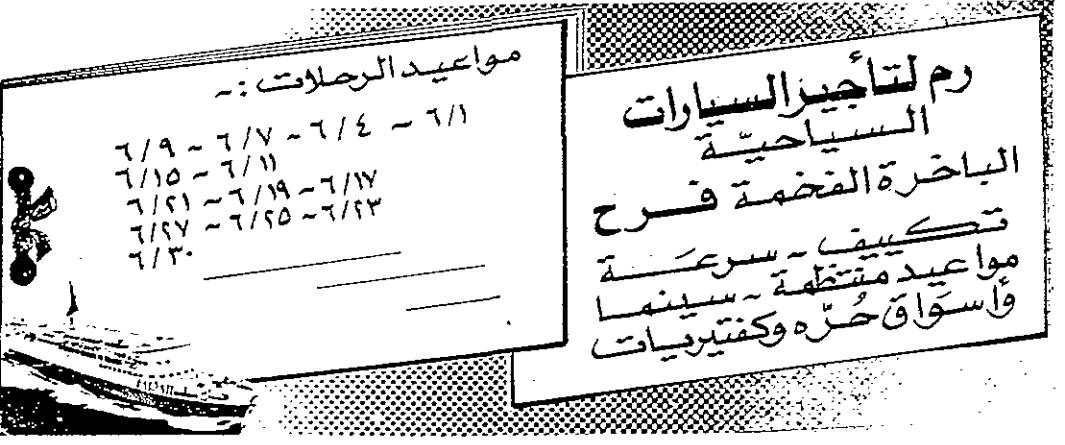 رم لتأجير السيارات
السياحيّة
الباخرة الفخمة فرح
تكييف ~ سرعة
مواعيد منتظمة ~ سينما
وأسوَاق حُرّه وكفتيريات
مواعيد الرحلات :~
٦/١ ~ ٦/٤ ~ ٦/٧ ~ ٦/٩
٦/١١ ~ ٦/١٥
٦/١٧ ~ ٦/١٩ ~ ٦/٢١
٦/٢٣ ~ ٦/٢٥ ~ ٦/٢٧
٦/٣٠